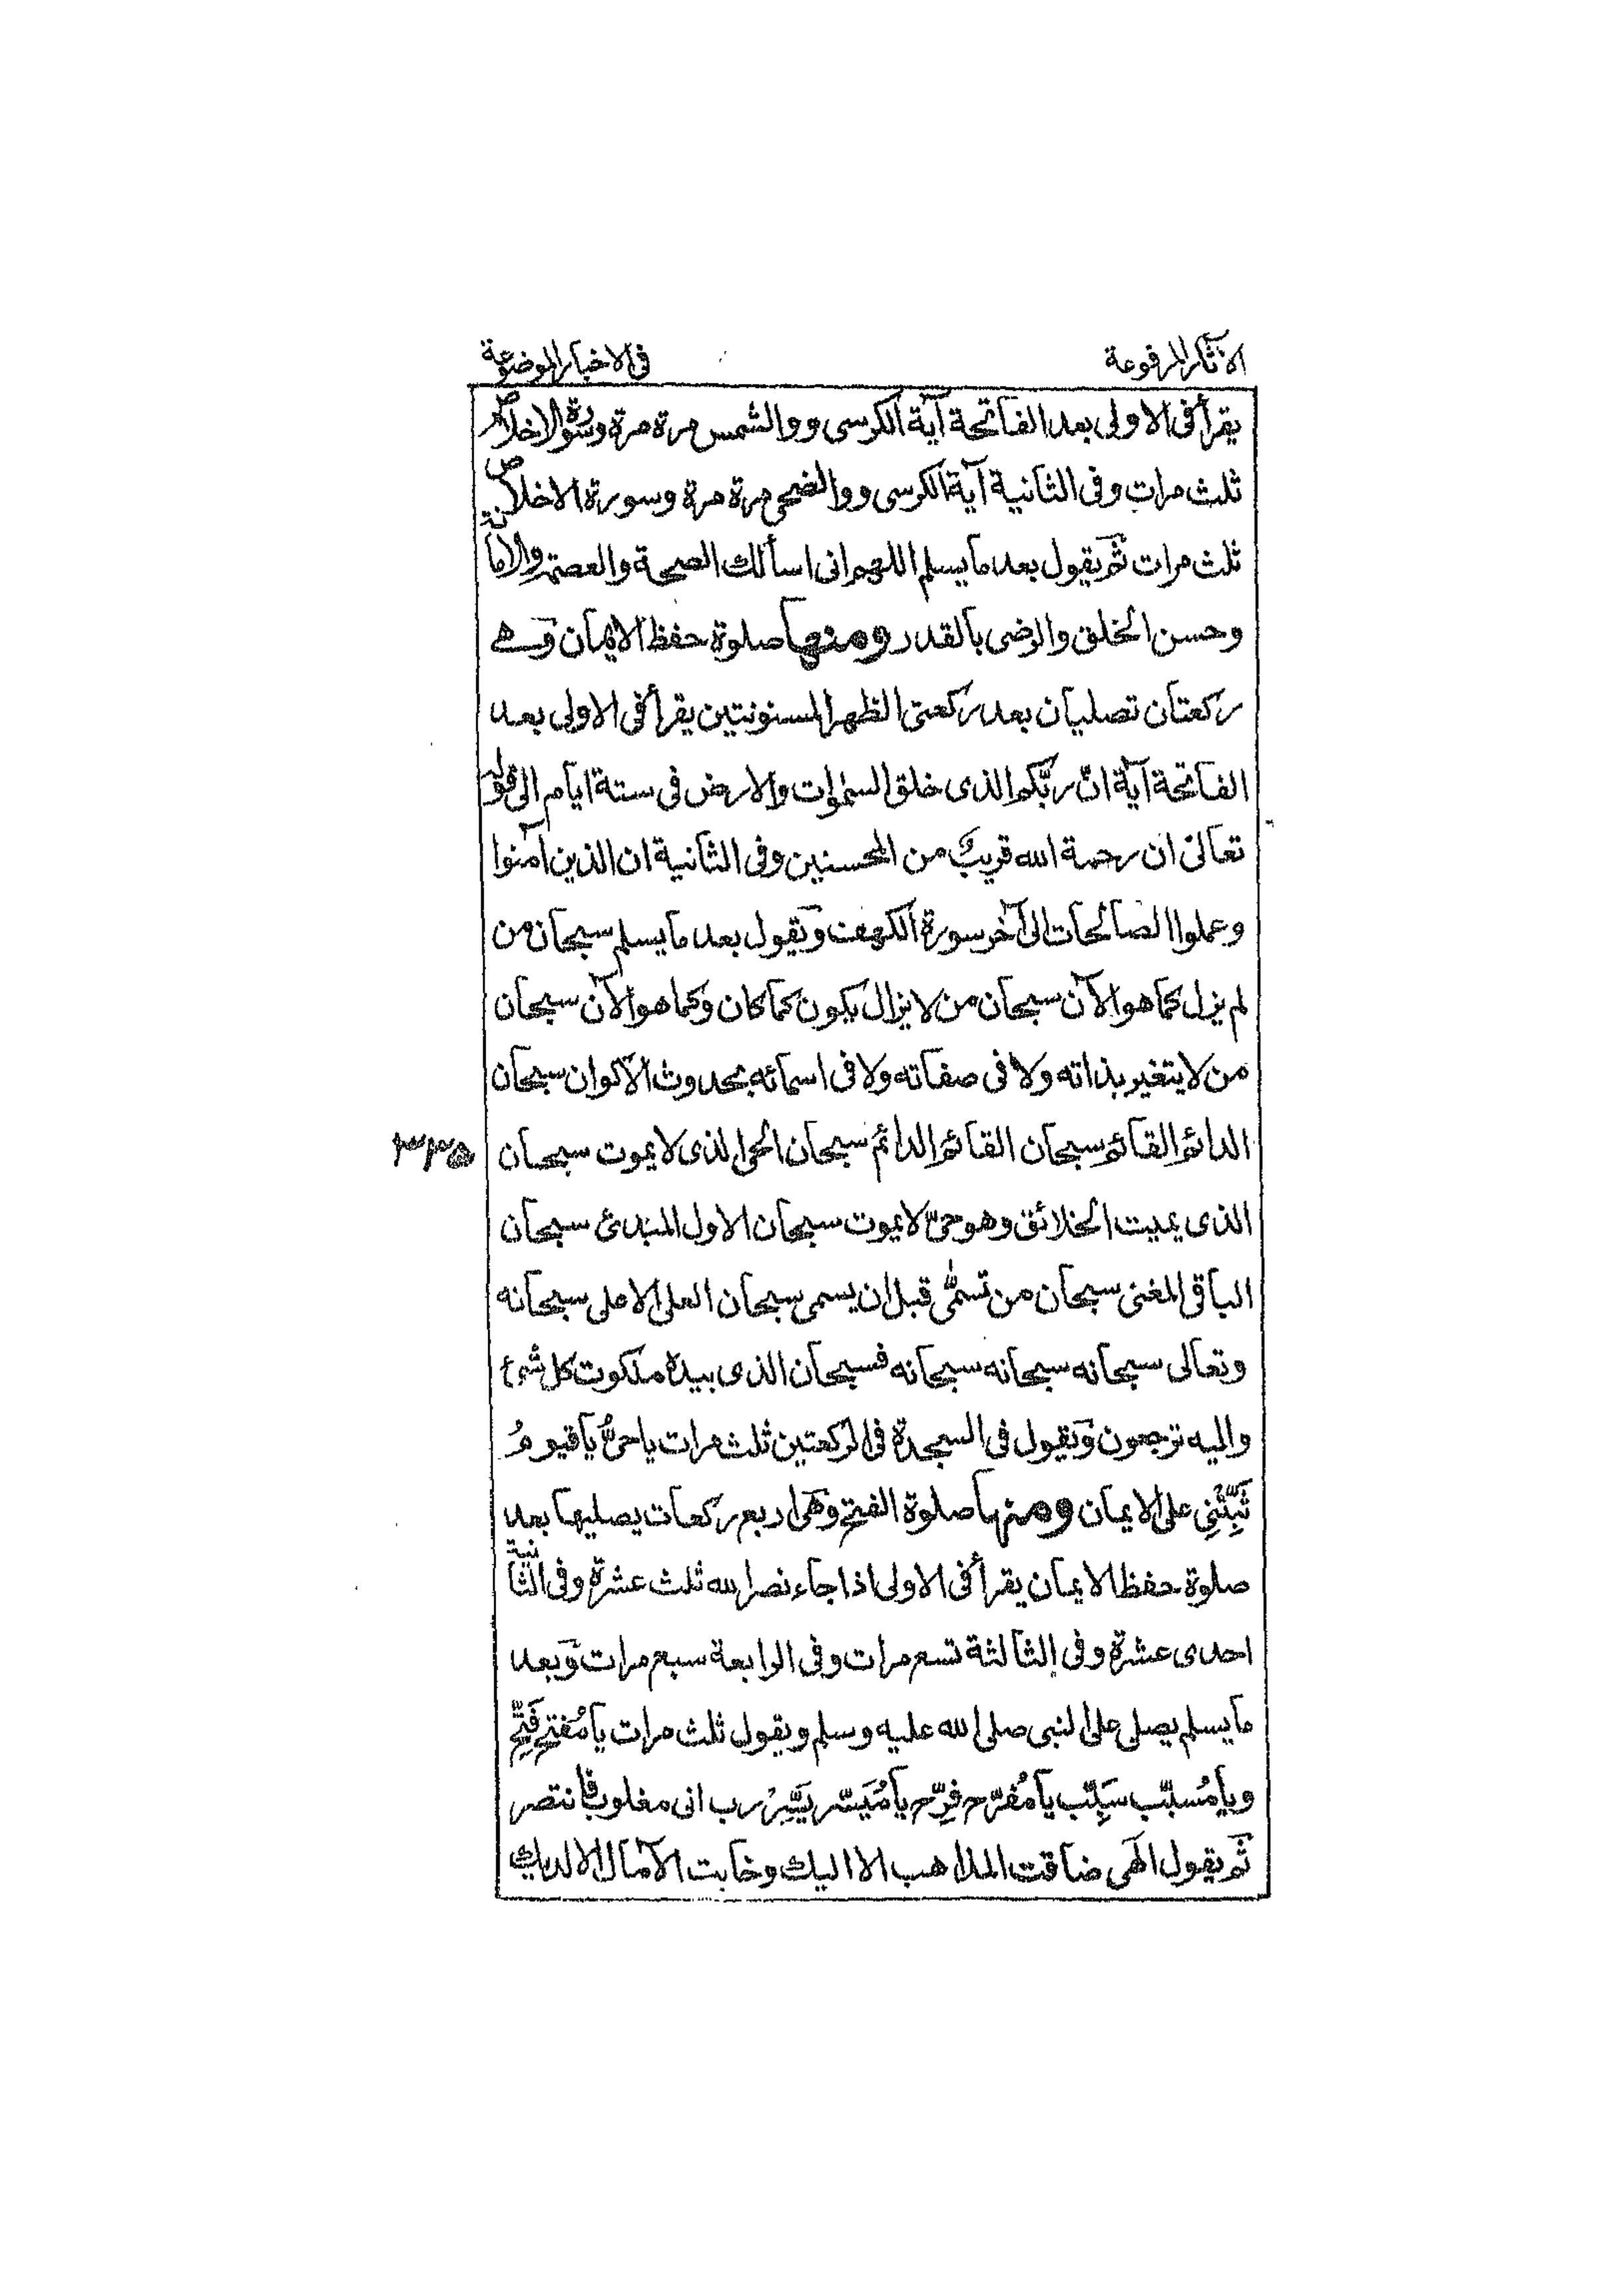 الآثار المرفوعة
فى الاخبار الموضوعة
يقرأ فى الاولى بعد الفاتحة آية الكرسى ووالشمس مرة مرة وسورة الاخلاص
ثلث مرات وفى الثانية آية الكرسى ووالضحى مرة مرة وسورة الاخلاص
ثلث مرات ثم يقول بعد ما يسلم اللهم انى اسألك الصحة والعصمة والامانة
وحسن الخلق والرضى بالقدر ومنها صلوة حفظ الايمان وهى
ركعتان تصليان بعد ركعتى الظهر المسنونتين يقرأ فى الاولى بعد
الفاتحة آية انّ ربّكم الذى خلق السمٰوات والارض فى ستة ايام الى قوله
تعالى ان رحمة الله قريبٌ من المحسنين وفى الثانية ان الذين آمنوا
وعملوا الصالحات الى آخر سورة الكهف ويقول بعد ما يسلم سبحان من
لم يزل كما هو الآن سبحان من لا يزال يكون كما كان وكما هو الآن سبحان
من لا يتغير بذاته ولا فى صفاته ولا فى اسمائه بحدوث الاكوان سبحان
الدائم القائم سبحان القائم الدائم سبحان الحى الذى لا يموت سبحان
٣٣٥
الذى يميت الخلائق وهو حىّ لا يموت سبحان الاول المبدئ سبحان
الباقى المغنى سبحان من تسمّٰى قبل ان يسمى سبحان العلى الاعلى سبحانه
وتعالى سبحانه سبحانه سبحانه فسبحان الذى بيده ملكوت كل شئ
واليه ترجعون ويقول فى السجدة فى الركعتين ثلث مرات يا حىُّ يا قيومُ
ثَبِّتْنِى على الايمان ومنها صلوة الفتح وهى اربع ركعات يصليها بعد
صلوة حفظ الايمان يقرأ فى الاولى اذا جاء نصر الله ثلث عشرة وفى الثانية
احدى عشرة وفى الثالثة تسع مرات وفى الرابعة سبع مرات وبعد
ما يسلم يصلى على النبى صلى الله عليه وسلم ويقول ثلث مرات يا مُفتح فَتِّح
ويا مُسبّب سَبِّب يا مُفرّح فرِّح يا مُيَسّر يَسِّرْ رب انى مغلوب فانتصر
ثم يقول الٓهى ضاقت المذاهب الا اليك وخابت الآمال الا لديك